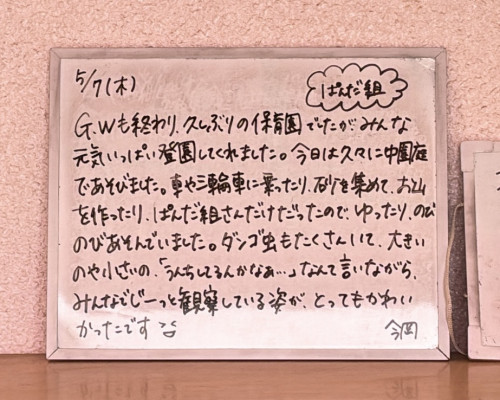 5/7(木)
ぱんだ組
G.Wも終わり、久しぶりの保育園でしたがみんな
元気いっぱい登園してくれました。今日は久々に中園庭
であそびました。車や三輪車に乗ったり、砂を集めて、お山
を作ったり、ぱんだ組さんだけだったので、ゆったり、のび
のびあそんでいました。ダンゴ虫もたくさんいて、大きい
のや小さいの、「うんちしてるんかなぁ…」なんて言いながら、
みんなでじーっと観察している姿が、とってもかわい
かったです
今岡